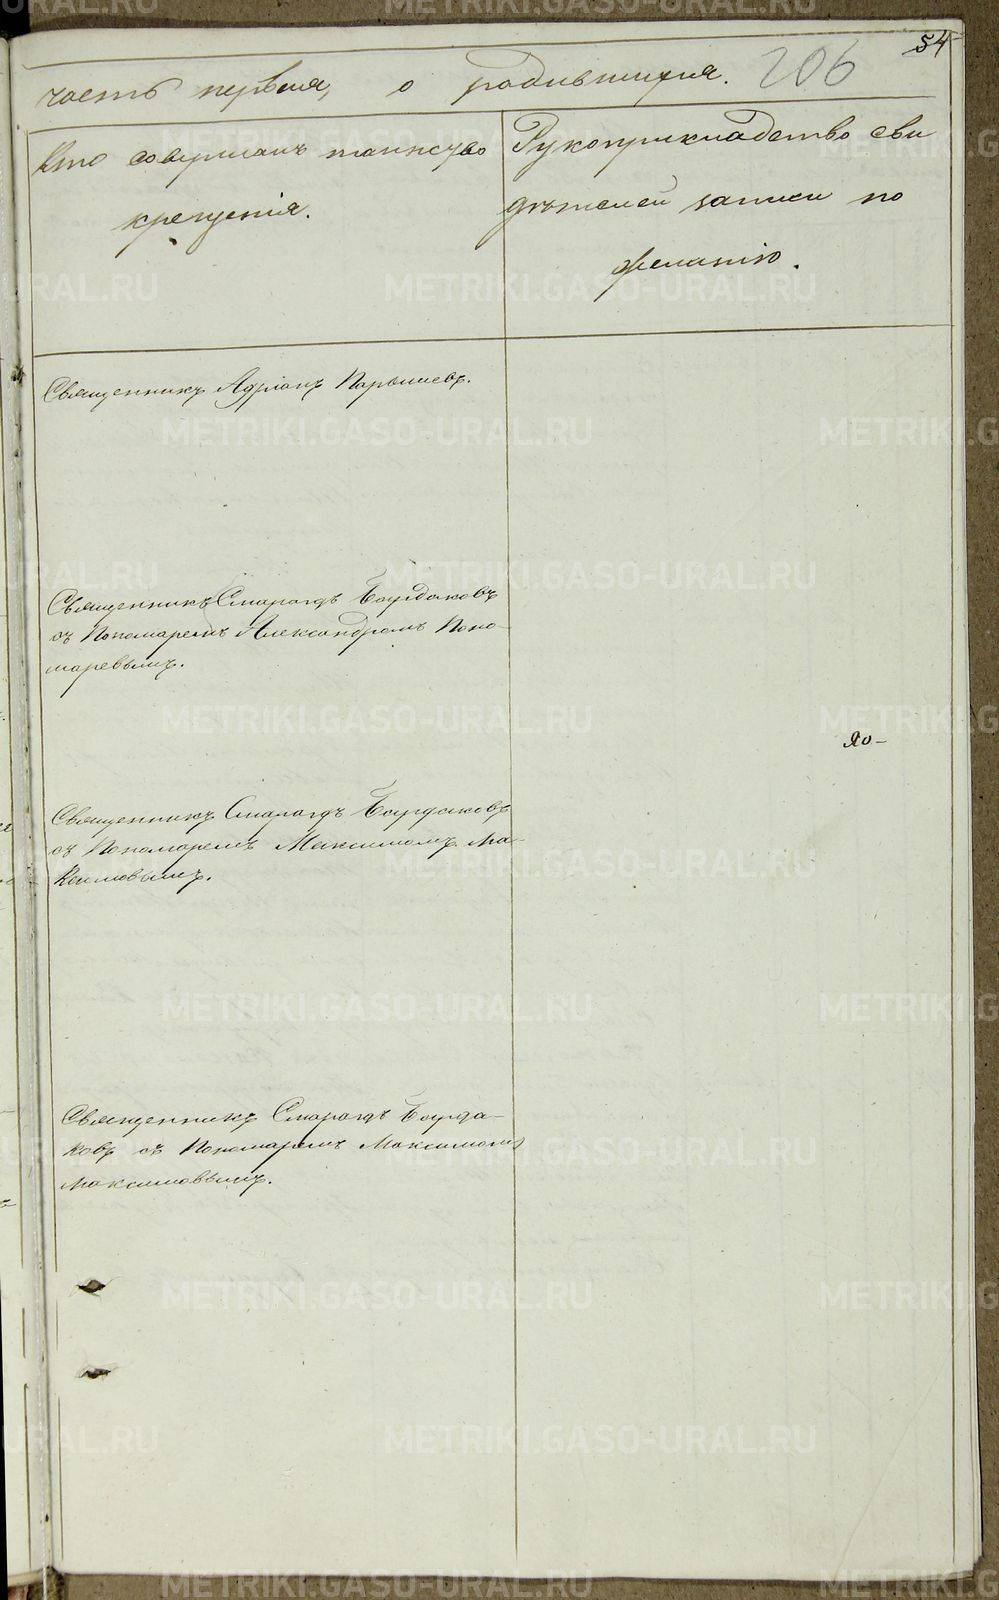 54
часть первая, о родившихся. 206
Кто совершалъ таинство
крещенія.
Рукоприкладство сви
дѣтелей записи по
желанію.
Священникъ Адріанъ
Священникъ Смарагдъ Бурдаковъ
съ Пономаремъ Александромъ Поно-
маревымъ.
Яо-
Священникъ Смарагдъ Бурдаковъ
съ Пономаремъ Максимомъ Ма-
ксимовымъ.
Священникъ Смарагдъ Бурда-
ковъ съ Пономаремъ Максимомъ
Максимовымъ.
METRIKI.GASO-URAL.RU